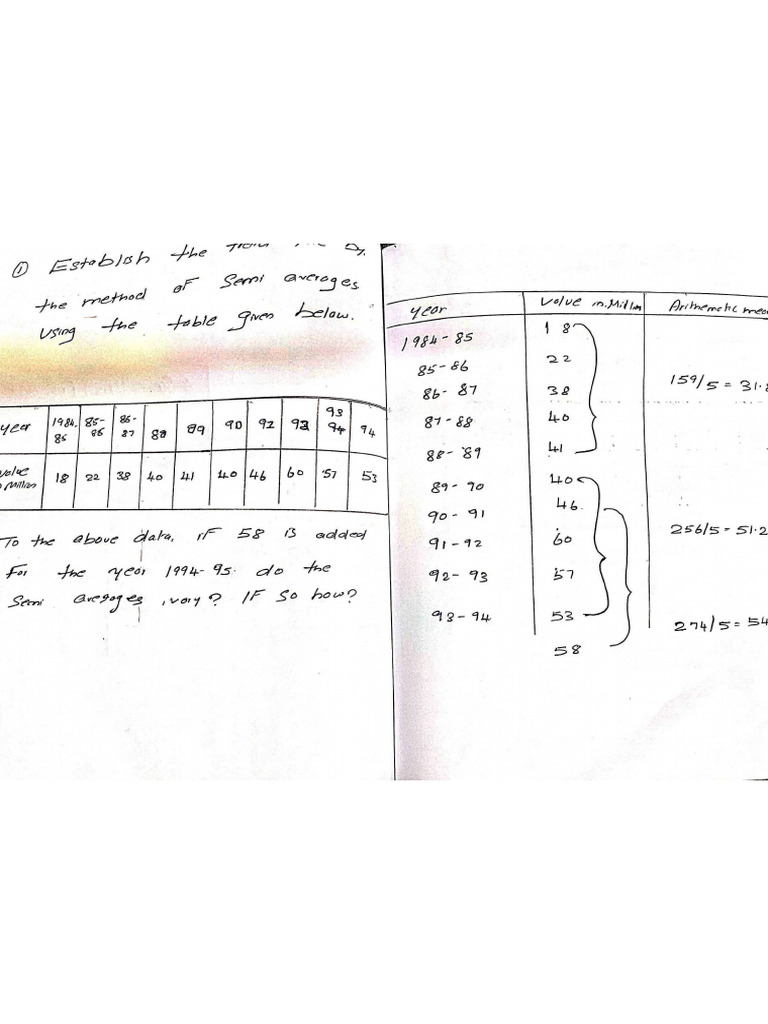 ① Establish the trend line by
the method of Semi averages
using the table given below.
year 1984-85 85-86 86-87 88 89 90 92 93 93 94 94
value Million 18 22 38 40 41 40 46 60 57 53
To the above data, if 58 is added
For the year 1994-95. do the
Semi averages vary? IF So how?
year value in.Million Arithmetic
1984-85 18
85-86 22
86-87 38 159/5 = 31.8
87-88 40
88-89 41
89-90 40
90-91 46
91-92 60 256/5 = 51.2
92-93 57
93-94 53 274/5 = 54
58